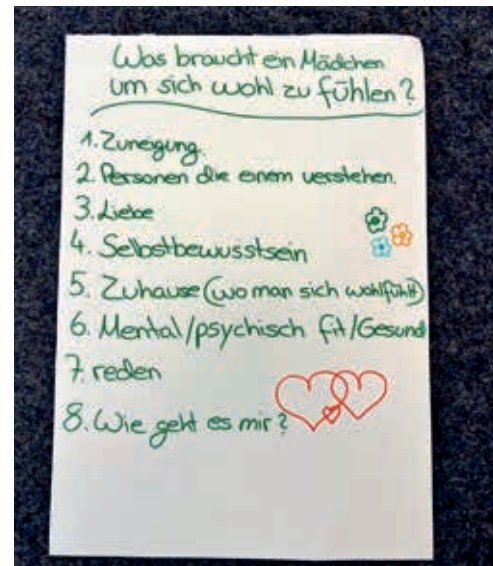 Was braucht ein Mädchen
um sich wohl zu fühlen?
1. Zuneigung.
2. Personen die einem verstehen.
3. Liebe
4. Selbstbewusstsein
5. Zuhause (wo man sich wohlfühlt)
6. Mental/psychisch fit/Gesund
7. reden
8. Wie geht es mir?